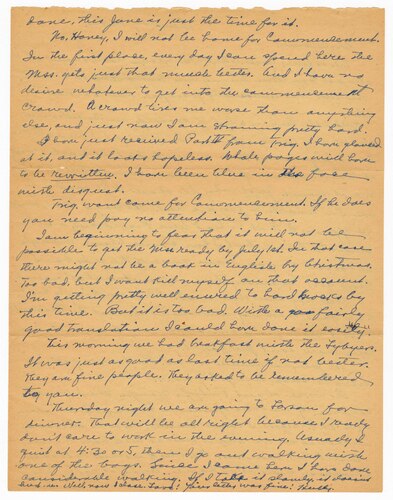 done, this June is just the time for it.
No, Honey, I will not be home for Commencement.
In the first place, every day I can spend here the
Mss. gets just that much better. And I have no
desire whatever to get into the commencement
crowd. A crowd tires me worse than anything
else, and just now I am straining pretty hard.
I have just received Part II from Trig. I have glanced
at it, and it looks hopeless. Whole pages will have
to be rewritten. I have been blue in the face
with disgust.
Trig. wont come for Commencement. If he does
you need pay no attention to him.
I am beginning to fear that it will not be
possible to get the Mss ready by July 1st. In that case
there might not be a book in English by Christmas.
Too bad, but I wont kill myself on that account.
I'm getting pretty well enured to hard knocks by
this time. But it is too bad. With a fairly
good translation I could have done it easily.
This morning we had breakfast with the
It was just as good as last time if not better.
They are fine people. They asked to be remembered
to you.
Thursday night we are going to for
dinner. That will be all right because I really
don't care to work in the evening. Usually I
quit at 4:30 or 5, then I go out walking with
one of the boys. Since I came here I have done
considerable walking. If I take it slowly it doesn't
Well, now I close. Love! Your letter was fine. Thanks.